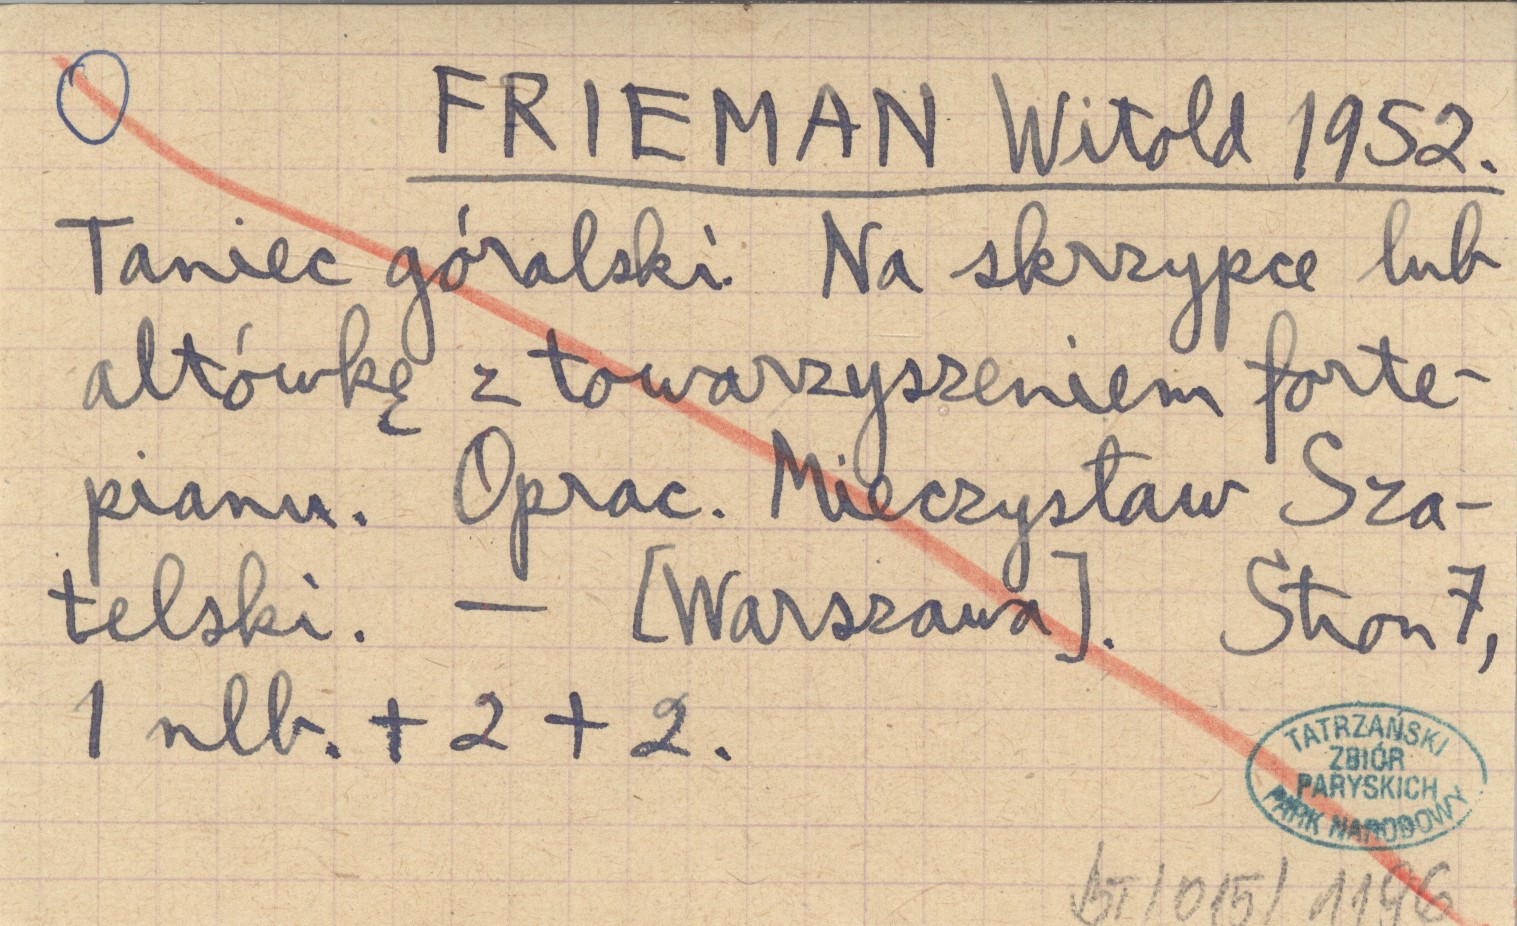 FRIEMAN Witold 1952.
Taniec góralski. Na skrzypce lub
altówkę z towarzyszeniem forte-
pianu. Oprac. Mieczysław Sza-
telski. — [Warszawa]. Stron 7,
1 nlb. + 2 + 2.
TATRZAŃSKI
ZBIÓR
PARYSKICH
PARK NARODOWY
/015/ 1196